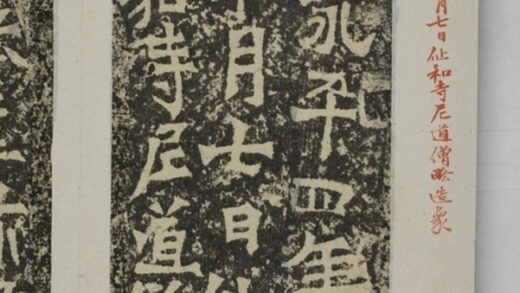 月七日仙和寺尼道僧略造象
永平四年
十月七日
和寺尼道